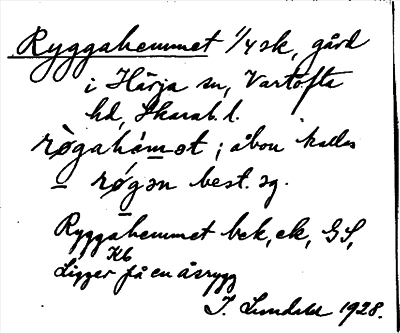 Ryggahemmet 1/4 sk, gård
i Härja sn, Vartofta
hd, Skarab. l.
rògahȧmət ; åbon kallas
røgən best. sg.
Ryggahemmet bek, ek, GS,
Kb
Ligger på en åsrygg
J. Lundahl 1928.